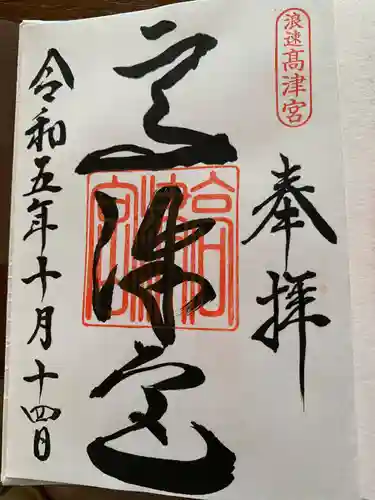 浪速高津宮
奉拝
高津宮
高津宮
令和五年十月十四日